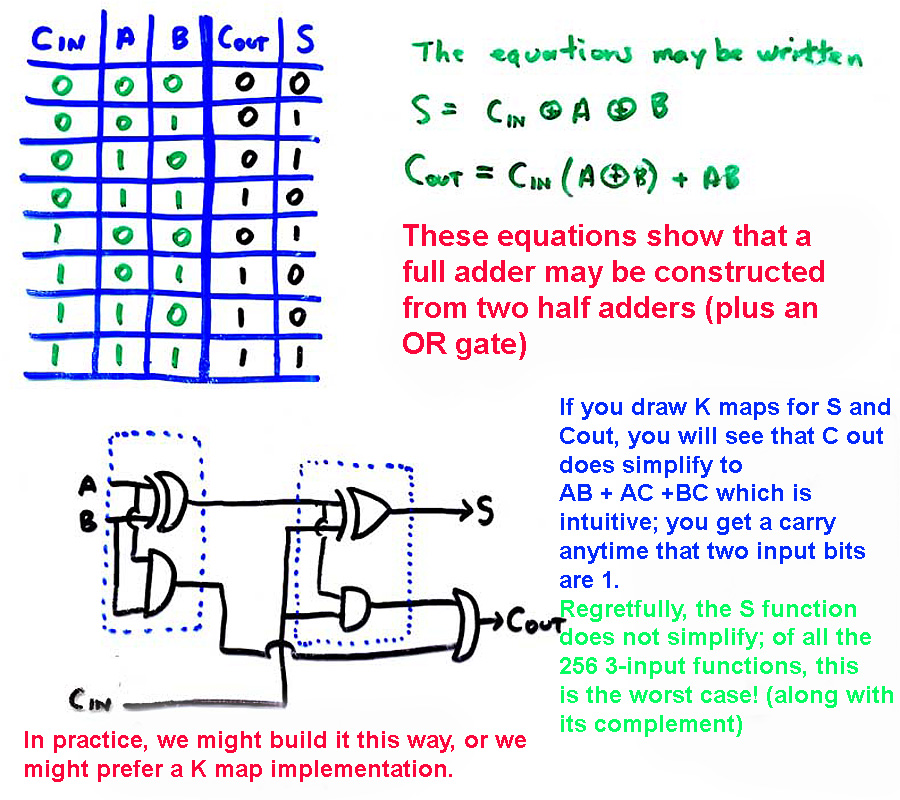 CIN A B COUT S
0 0 0 0 0
0 0 1 0 1
0 1 0 0 1
0 1 1 1 0
1 0 0 0 1
1 0 1 1 0
1 1 0 1 0
1 1 1 1 1
The equations may be written
S = CIN ⊕ A ⊕ B
COUT = CIN (A⊕B) + AB
These equations show that a
full adder may be constructed
from two half adders (plus an
OR gate)
If you draw K maps for S and
Cout, you will see that C out
does simplify to
AB + AC +BC which is
intuitive; you get a carry
anytime that two input bits
are 1.
Regretfully, the S function
does not simplify; of all the
256 3-input functions, this
is the worst case! (along with
its complement)
A
B
S
COUT
CIN
In practice, we might build it this way, or we
might prefer a K map implementation.